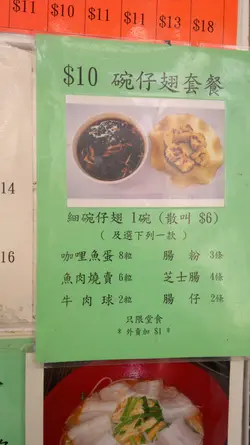 $11 $10 $11 $11 $13 $18
$10 碗仔翅套餐
細碗仔翅 1碗 (散叫 $6)
( 及選下列一款 )
咖哩魚蛋 8粒 腸 粉 3條
魚肉燒賣 6粒 芝士腸 4條
牛 肉 球 2粒 腸 仔 2條
只限堂食
* 外賣加 $1 *
14
16